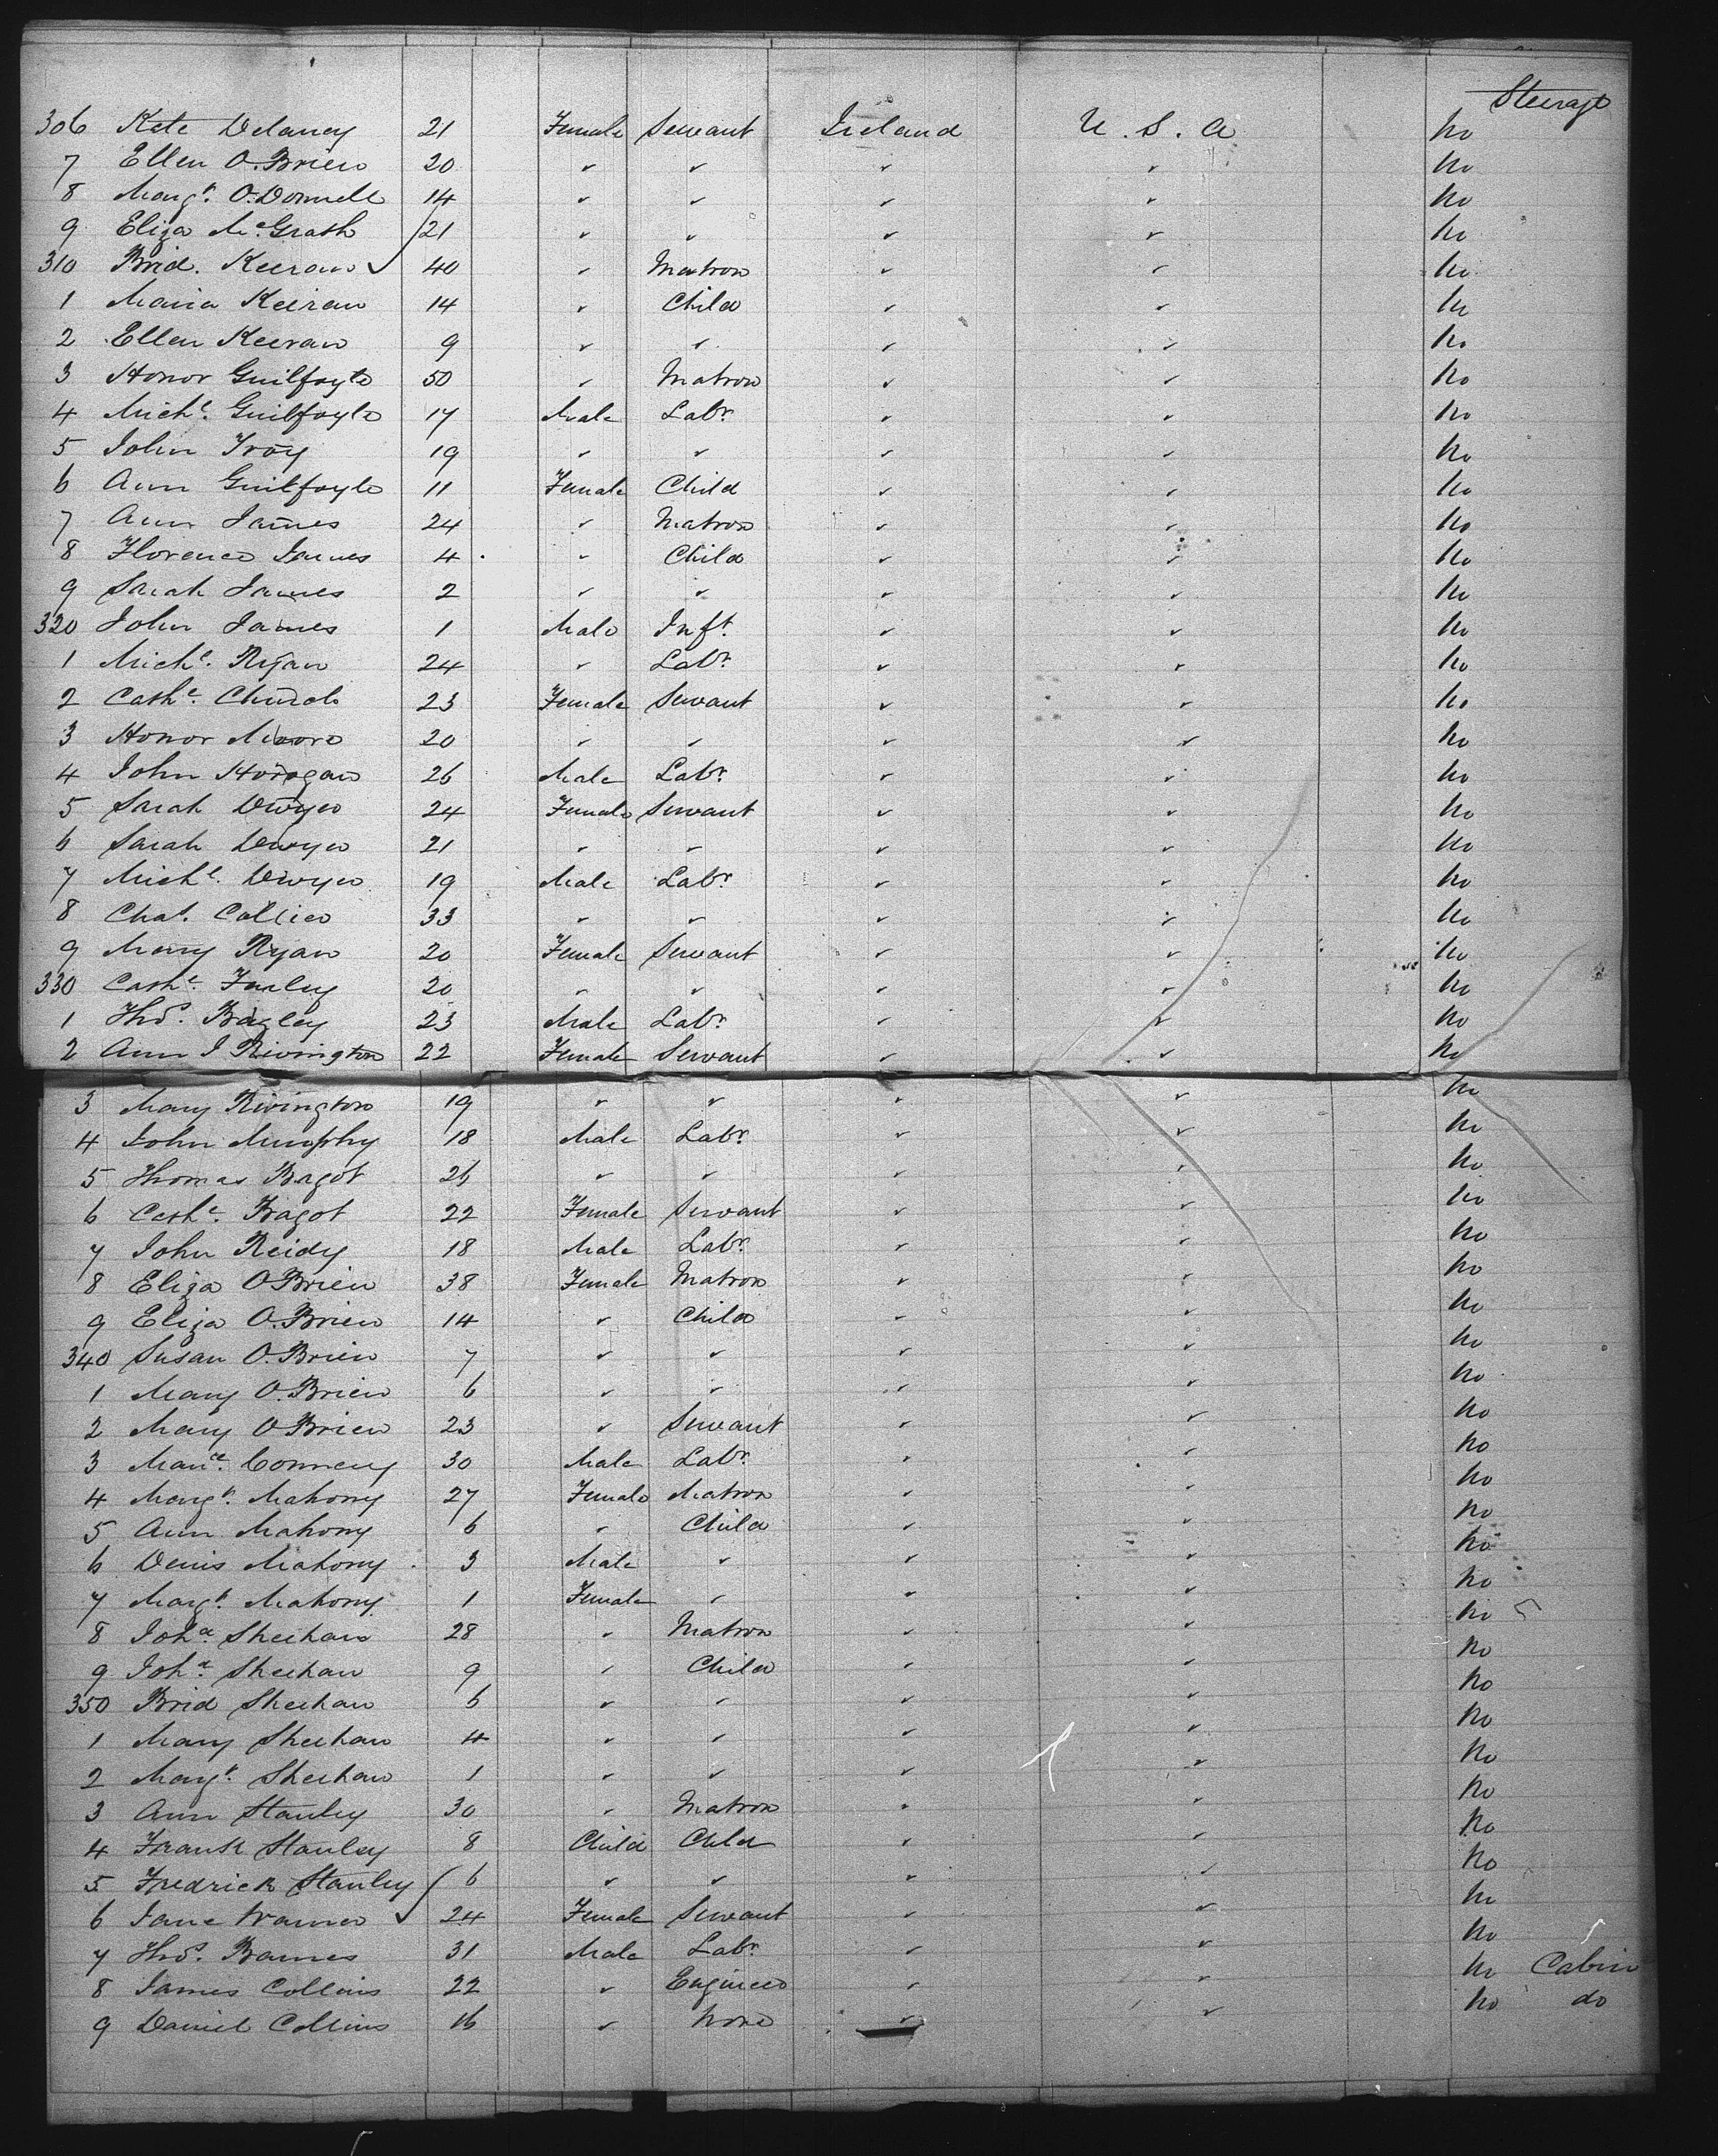 Steerage
306 Kate Delaney 21 Female Servant Ireland U.S.A No
7 Ellen O.Brien 20 " " " " No
8 Margt. O.Donnell 14 " " " " No
9 Eliza McGrath 21 " " " " No
310 Brid. Keeran 40 " Matron " " No
1 Maria Keeran 14 " Child " " No
2 Ellen Keeran 9 " " " " No
3 Honor Guilfoyle 50 " Matron " " No
4 Michl. Guilfoyle 17 Male Labr. " " No
5 John Troy 19 " " " " No
6 Ann Guilfoyle 11 Female Child " " No
7 Ann James 24 " Matron " " No
8 Florence James 4 " Child " " No
9 Sarah James 2 " " " " No
320 John James 1 Male Inft. " " No
1 Michl. Ryan 24 " Labr. " " No
2 Cathe. 23 Female Servant " " No
3 Honor Moore 20 " " " " No
4 John Horogan 26 Male Labr. " " No
5 Sarah Dwyer 24 Female Servant " " No
6 Sarah Dwyer 21 " " " " No
7 Michl. Dwyer 19 Male Labr. " " No
8 Chas. Collier 33 " " " " No
9 Mary Ryan 20 Female Servant " " No
330 Cathe. Farley 20 " " " " No
1 Thos. Bagley 23 Male Labr. " " No
2 Ann J Rivington 22 Female Servant " " No
3 Mary Rivington 19 " " " " No
4 John Murphy 18 Male Labr. " " No
5 Thomas Bagot 26 " " " " No
6 Cathe. Bagot 22 Female Servant " " No
7 John Reidy 18 Male Labr. " " No
8 Eliza O'Brien 38 Female Matron " " No
9 Eliza O.Brien 14 " Child " " No
340 Susan O.Brien 7 " " " " No
1 Mary O.Brien 6 " " " " No
2 Mary O'Brien 23 " Servant " " No
3 Maure. Conneny 30 Male Labr. " " No
4 Margt. Mahony 27 Female Matron " " No
5 Ann Mahony 6 " Child " " No
6 Denis Mahony 3 Male " " " No
7 Margt. Mahony 1 Female " " " No
8 Joha. Sheehan 28 " Matron " " No
9 Joha. Sheehan 9 " Child " " No
350 Brid Sheehan 6 " " " " No
1 Mary Sheehan 4 " " " " No
2 Margt. Sheehan 1 " " " " No
3 Ann Stanley 30 " Matron " " No
4 Frank Stanley 8 Child Child " " No
5 Fredrick Stanley 6 " " " " No
6 Jane Warner 24 Female Servant " " No
7 Thos. Barnes 31 Male Labr. " " No
8 James Collins 22 " Engineer " " No Cabin
9 Daniel Collins 16 " None " " No do